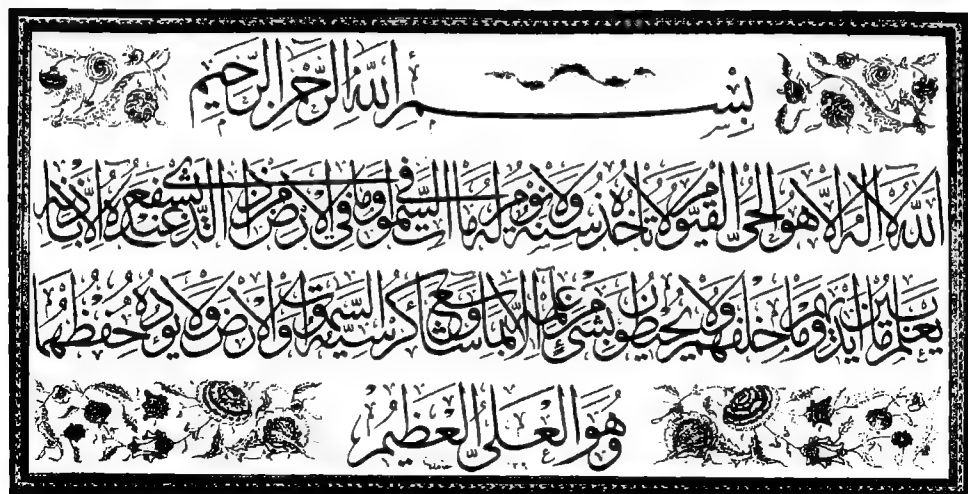 بِسْمِ اللَّهِ الرَّحْمَنِ الرَّحِيمِ
اللَّهُ لَا إِلَهَ إِلَّا هُوَ الْحَيُّ الْقَيُّومُ لَا تَأْخُذُهُ سِنَةٌ وَلَا نَوْمٌ لَهُ مَا فِي السَّمَوَاتِ وَمَا فِي الْأَرْضِ مَنْ ذَا الَّذِي يَشْفَعُ عِنْدَهُ إِلَّا بِإِذْنِهِ
يَعْلَمُ مَا بَيْنَ أَيْدِيهِمْ وَمَا خَلْفَهُمْ وَلَا يُحِيطُونَ بِشَيْءٍ مِنْ عِلْمِهِ إِلَّا بِمَا شَاءَ وَسِعَ كُرْسِيُّهُ السَّمَوَاتِ وَالْأَرْضَ وَلَا يَؤُدُهُ حِفْظُهُمَا
وَهُوَ الْعَلِيُّ الْعَظِيمُ